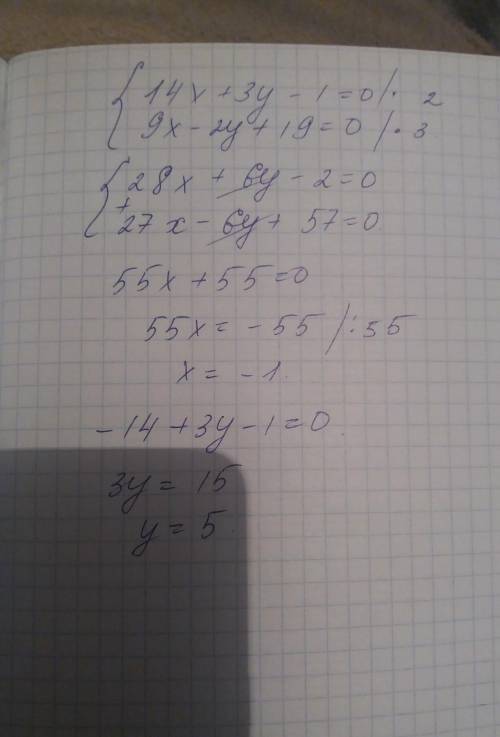 { 14x + 3y - 1 = 0 / · 2
9x - 2y + 19 = 0 / · 3
{ 28x + 6y - 2 = 0
+ 27x - 6y + 57 = 0
55x + 55 = 0
55x = -55 / : 55
x = -1.
-14 + 3y - 1 = 0.
3y = 15
y = 5.